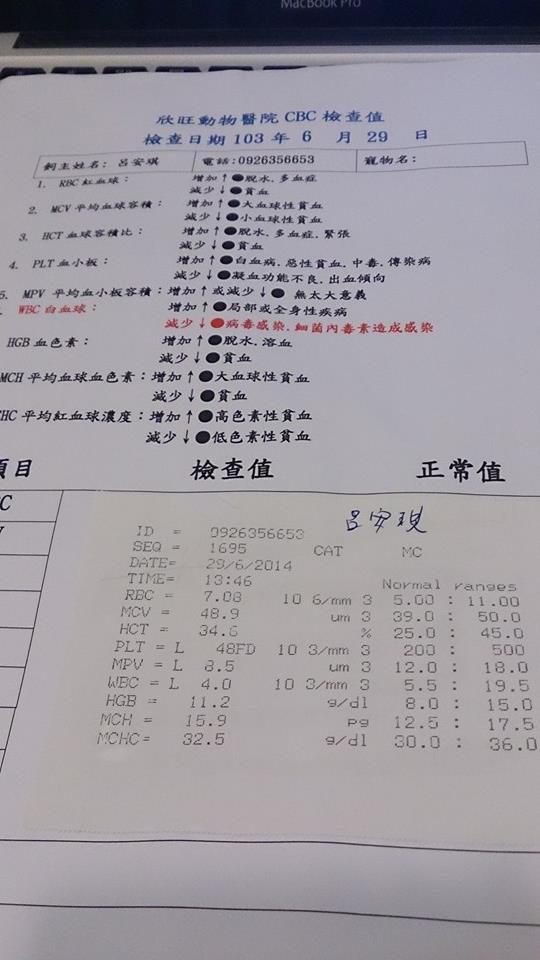 MacBook Pro
欣旺動物醫院 CBC 檢查值
檢查日期 103 年 6 月 29 日
飼主姓名: 呂安琪 電話:0926356653 寵物名:
1. RBC 紅血球: 增加↑●脫水.多血症
減少↓●貧血
2. MCV 平均血球容積: 增加↑●大血球性貧血
減少↓●小血球性貧血
3. HCT 血球容積比: 增加↑●脫水.多血症.緊張
減少↓●貧血
4. PLT 血小板: 增加↑●白血病.惡性貧血.中毒.傳染病
減少↓●凝血功能不良.出血傾向
5. MPV 平均血小板容積: 增加↑或減少↓● 無太大意義
WBC 白血球: 增加↑●局部或全身性疾病
減少↓●病毒感染.細菌內毒素造成感染
HGB 血色素: 增加↑●脫水.溶血
減少↓●貧血
MCH 平均血球血色素: 增加↑●大血球性貧血
減少↓●貧血
CHC 平均紅血球濃度: 增加↑●高色素性貧血
減少↓●低色素性貧血
項目 檢查值 正常值
C
呂安琪
ID = 0926356653
SEQ = 1695 CAT MC
DATE= 29/6/2014
TIME= 13:46 Normal ranges
RBC = 7.08 10 6/mm 3 5.00 : 11.00
MCV = 48.9 um 3 39.0 : 50.0
HCT = 34.6 % 25.0 : 45.0
PLT = L 48FD 10 3/mm 3 200 : 500
MPV = L 8.5 um 3 12.0 : 18.0
WBC = L 4.0 10 3/mm 3 5.5 : 19.5
HGB = 11.2 g/dl 8.0 : 15.0
MCH = 15.9 pg 12.5 : 17.5
MCHC= 32.5 g/dl 30.0 : 36.0